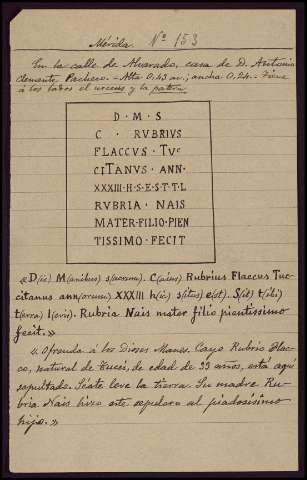 Mérida. Nº 153
En la calle de Alvarado, casa de D. Antonio
Clemente Pacheco. - Alta 0,43 m.; ancha 0,24. - Tiene
á los lados el urceus y la patera.
D · M · S
C · RVBRIVS
FLACCVS · TVC
CITANVS · ANN ·
XXXIII · H · S · E · S · T · T · L
RVBRIA · NAIS
MATER · FILIO · PIEN
TISSIMO · FECIT
«D(is) M(anibus) s(acrum). C(aius) Rubrius Flaccus Tuc-
citanus ann(orum) XXXIII h(ic) s(itus) e(st). S(it) t(ibi)
t(erra) l(evis). Rubria Nais mater filio pientissimo
fecit.»
«Ofrenda á los Dioses Manes. Cayo Rubrio Flac-
co, natural de Tucci, de edad de 33 años, está aquí
sepultado. Séate leve la tierra. Su madre Ru-
bria Nais hizo este sepulcro al piadosísimo
hijo.»